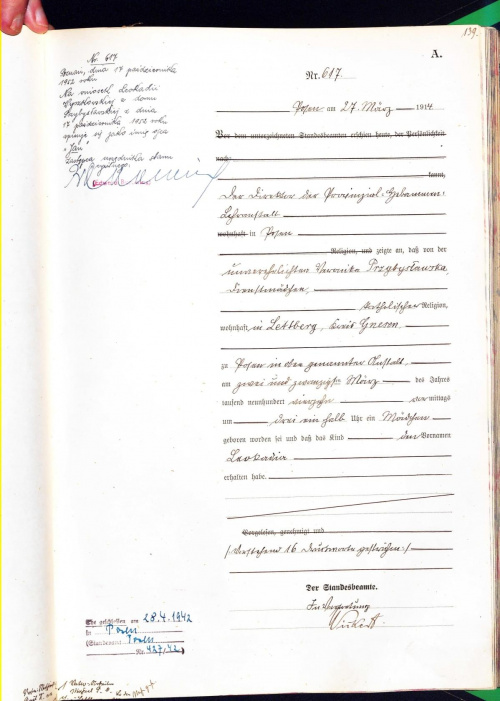 139.
A.
Nr. 617
Poznań, dnia 17 października
1952 roku
Na wniosek Leokadii
z domu
Przybysławskiej z dnia
17 października 1952 roku
wpisuje się jako imię ojca
"Jan"
Zastępca urzędnika stanu
cywilnego.
Nr. 617
Posen am 27. März 1914
Vor dem unterzeichneten Standesbeamten erschien heute, der Persönlichkeit
nach
kannt,
Der Direktor der Provinzial-Hebammen-
Lehranstalt
wohnhaft in Posen
Religion, und zeigte an, daß von der
unverehelichten Veronika Przybysławska,
Dienstmädchen,
katholischer Religion,
wohnhaft in Lettberg, Kreis Gnesen
zu Posen in der genannten Anstalt
am zwei und zwanzigsten März des Jahres
tausend neunhundert vierzehn vormittags
um drei ein halb Uhr ein Mädchen
geboren worden sei und daß das Kind den Vornamen
Leokadia
erhalten habe.
Vorgelesen, genehmigt und
/Vorstehend 16 Druckworte gestrichen./
Der Standesbeamte.
In Vertretung
Ehe geschlossen am 28.4.1942
in Posen
(Standesamt Posen
Nr. 427/42.)